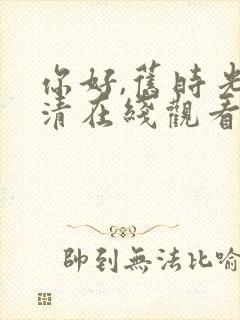 你好,舊時光
清在綫觀看
帥到無法比喻